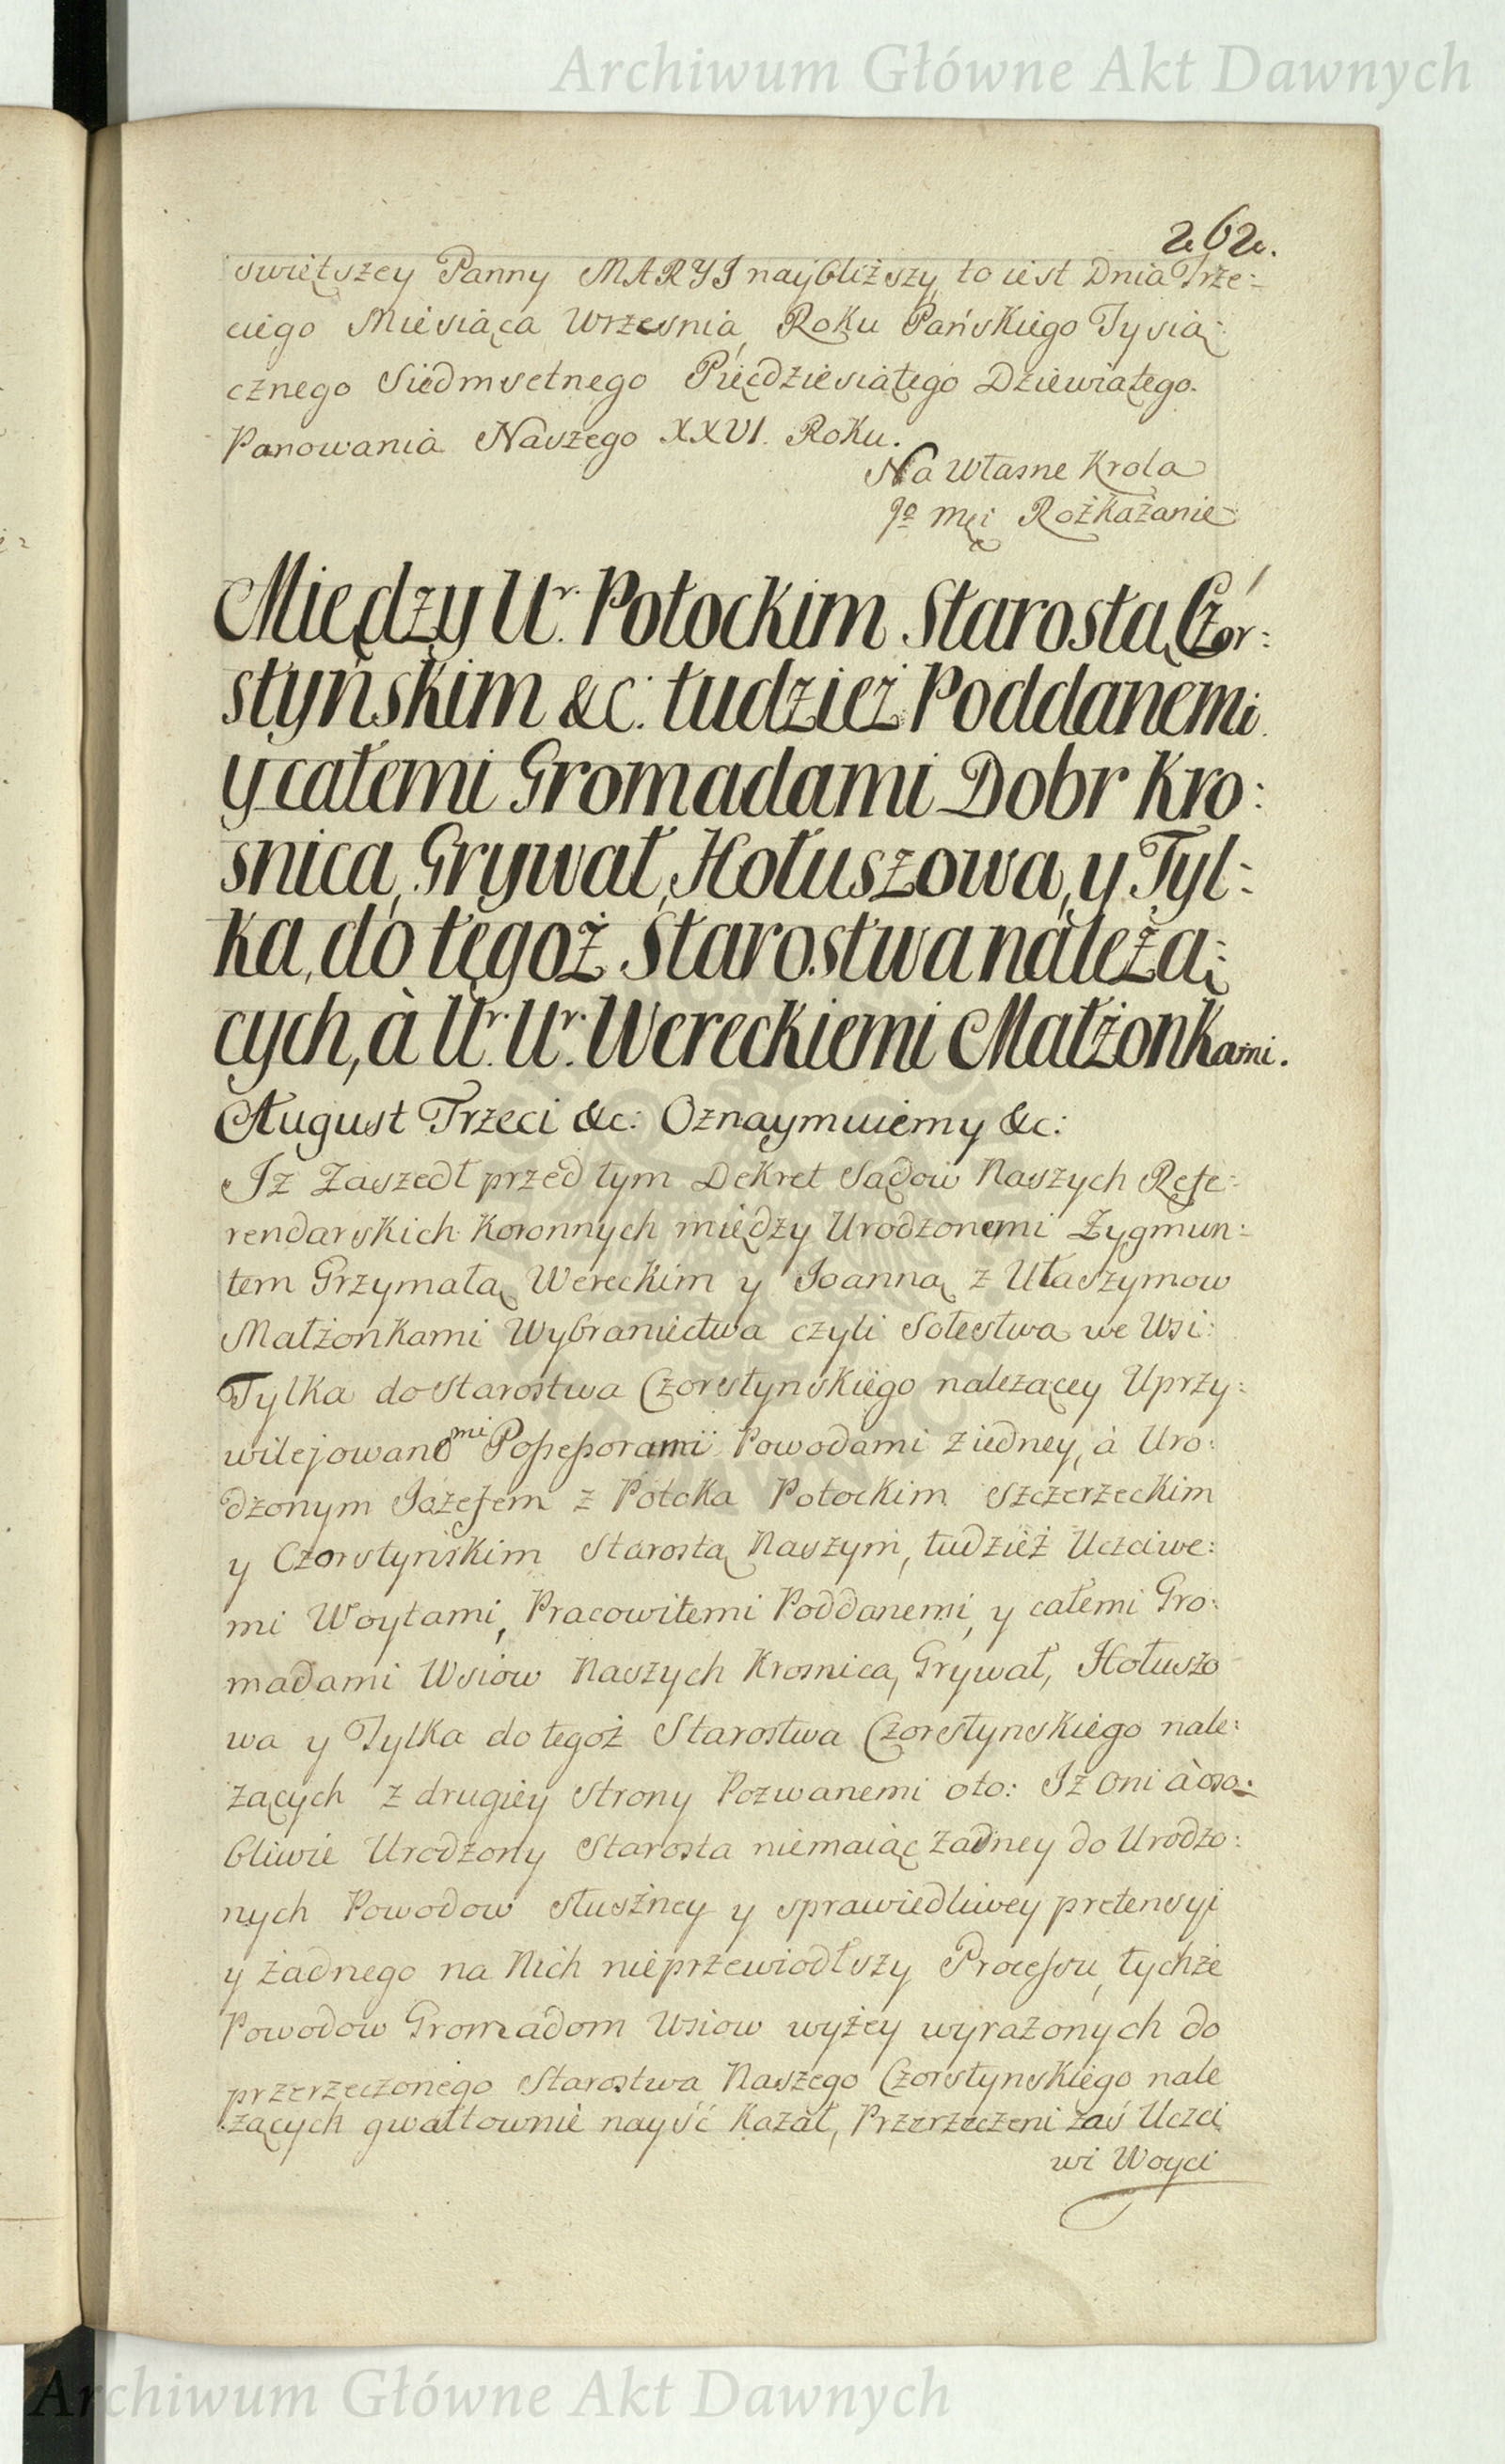 Archiwum Główne Akt Dawnych
262.
swiętszey Panny MARYI naybliższy, to iest Dnia Trze:
ciego Miesiąca Wrzesnia, Roku Pańskiego Tysią:
cznego Siedmsetnego Pięcdziesiątego Dziewiątego.
Panowania Naszego XXVI. Roku.
Na Własne Krola
Jo Mci Rożkażanie
Między Ur. Potockim Starostą Czor:
styńskim &c: tudzież Poddanemi
y całemi Gromadami Dobr Kro:
snica, Grywał, Hołuszowa, y Tyl:
ka, do tegoż Starostwa należą:
cych, à Ur. Ur. Wereckiemi Małżonkami.
August Trzeci &c: Oznaymuiemy &c:
Iż Zaszedł przed tym Dekret Sądow Naszych Refe:
rendarskich Koronnych między Urodzonemi Zygmun:
tem Grzymałą Wereckim y Joanną z Ułaszymow
Małżonkami Wybraniectwa czyli Sołestwa we Wsi:
Tylka do Starostwa Czorstynskiego należącey Uprzy:
wilejowanemi Possessorami Powodami z iedney, à Uro:
dzonym Jozefem z Potoka Potockim Szczerzeckim
y Czorstyńskim Starostą Naszym, tudzież Uczciwe:
mi Woytami, Pracowitemi Poddanemi, y całemi Gro:
madami Wsiow Naszych Krosnica, Grywał, Hołuszo
wa y Tylka do tegoż Starostwa Czorstynskiego nale:
żących z drugiey strony Pozwanemi oto: Iż oni à oso:
bliwie Urodzony Starosta niemaiąc żadney do Urodzo:
nych Powodow słuszney y sprawiedliwey pretensyi
y żadnego na Nich nieprzewiodłszy Processu, tychże
Powodow Gromadom Wsiow wyżey wyrażonych do
przerzeczonego Starostwa Naszego Czorstynskiego nale
żących gwałtownie nayść kazał, Przerzeczeni zaś Uczci
wi Woyci
Archiwum Główne Akt Dawnych